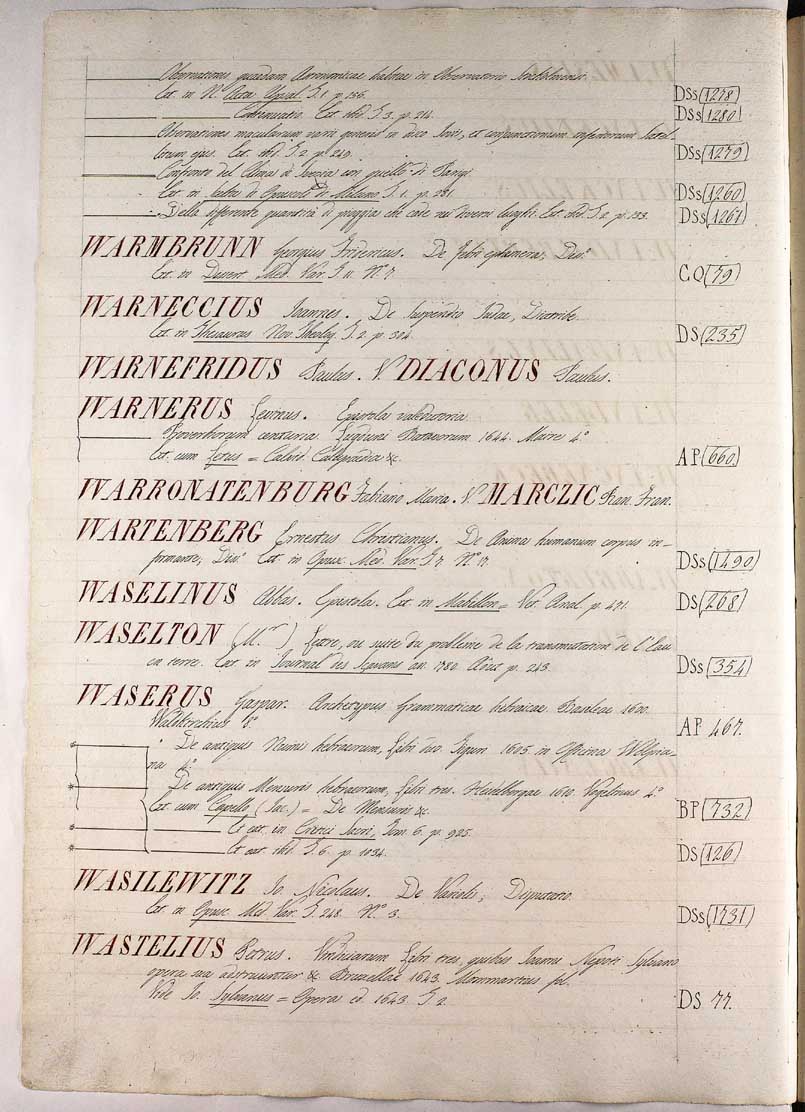 Observationes quaedam Astronomicae habitae in Observatorio Stockholmensi.
Ext. in N. Acta Upsal. T. 1. p. 136. DSs (1278)
Continuatio. Ext. ibid. T. 3. p. 214. DSs 1280)
Observationes macularum varii generis in disco Iovis, et conjunctionum inferiorum Satel-
litum ejus. Ext. ibid. T. 2. p. 249. DSs (1279)
Confronto del Clima di Svezia con quello di Parigi.
Ext. in Scelta di Opuscoli di Milano T. 1. p. 281. DSs (1260)
Della differente quantità di pioggia che cade nei diversi luoghi. Ext. ibid. T. 2. p. 133. DSs (1261)
WARMBRUNN Georgius Fridericus. De febri ephemera, Diss.
Ext. in Dissert. Med. Var. T. 11. N.º 7. CQ (79)
WARNECCIUS Ioannes. De suspendio Iudae, Diatribe.
Ext. in Thesaurus Nov. Theolog. T. 2. p. 304. DS (235)
WARNEFRIDUS Paulus. V. DIACONUS Paulus.
WARNERUS Levinus. Epistola valedictoria.
Proverbiorum centuria. Lugduni Batavorum 1644. Maire 4.º
Ext. cum = &c. AP (660)
WARRONATENBURG Fabiano Maria. V. MARCZIC Fran. Fran.
WARTENBERG Ernestus Christianus. De Anima humanum corpus in-
formante, Diss. Ext. in Opusc. Med. Var. T. 7. N.º 17. DSs (1490)
WASELINUS Abbas. Epistola. Ext. in Mabillon = Vet. Anal. p. 471. DS (268)
WASELTON (M.r) Lettre, ou suite du problême de la transmutation de l'Eau
en terre. Ext. in Journal des Sçavans an. 1780. Août p. 243. DSs (354)
WASERUS Gaspar. Archetypus Grammaticae hebraicae. Basileae 1610.
Waldkirchius 8.º AP 467.
De antiquis Numis hebraeorum, Libri duo. Tiguri 1605. in Officina Wolphia-
na 4.º
De antiquis Mensuris hebraeorum, Libri tres. Heidelbergae 1610. Vogelinus 4.º
Ext. cum Capelle (Iac.) = De Mensuris &c. BP (732)
Et ext. in Critici Sacri, Tom. 6. p. 925.
Et ext. ibid. T. 6. p. 1034. DS (126)
WASILEWITZ Io. Nicolaus. De Variolis, Disputatio.
Ext. in Opusc. Med. Var. T. 248. N.º 3. DSs (1731)
WASTELIUS Petrus. Vindiciarum Libri tres, quibus Ioanni Nepoti Sylvano
opera sua astruuntur &c. Bruxellae 1643. Mommartius fol.
Vide Io. Sylvanus = Opera ed. 1643. T. 2. DS 77.